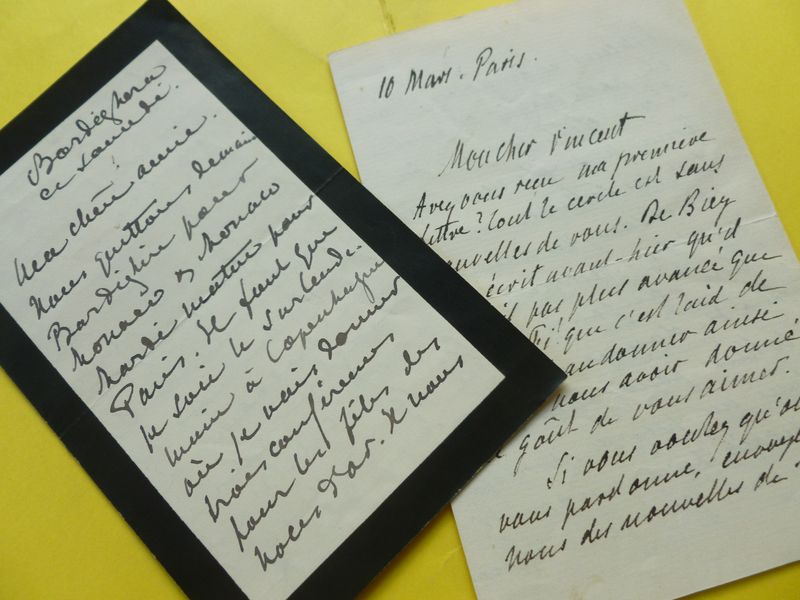 Bordighera
ce Samedi.
Ma chère amie.
Nous quittons demain
Bordighère pour
Monaco & Monaco
Mardi matin pour
Paris. Il faut que
je sois le surlende-
main à Copenhague
où je vais donner
trois conférences
pour les fêtes des
noces d'or. Je vous
10 Mars. Paris.
Mon cher Vincent
Avez vous reçu ma première
lettre? Tout le cercle est sans
nouvelles de vous. De Biez
écrit avant-hier qu'il
il pas plus avancé que
Fi! que c'est laid de
andonner ainsi
nous avoir donné
goût de vous aimer.
Si vous voulez qu'on
vous pardonne, envoyez
nous des nouvelles de